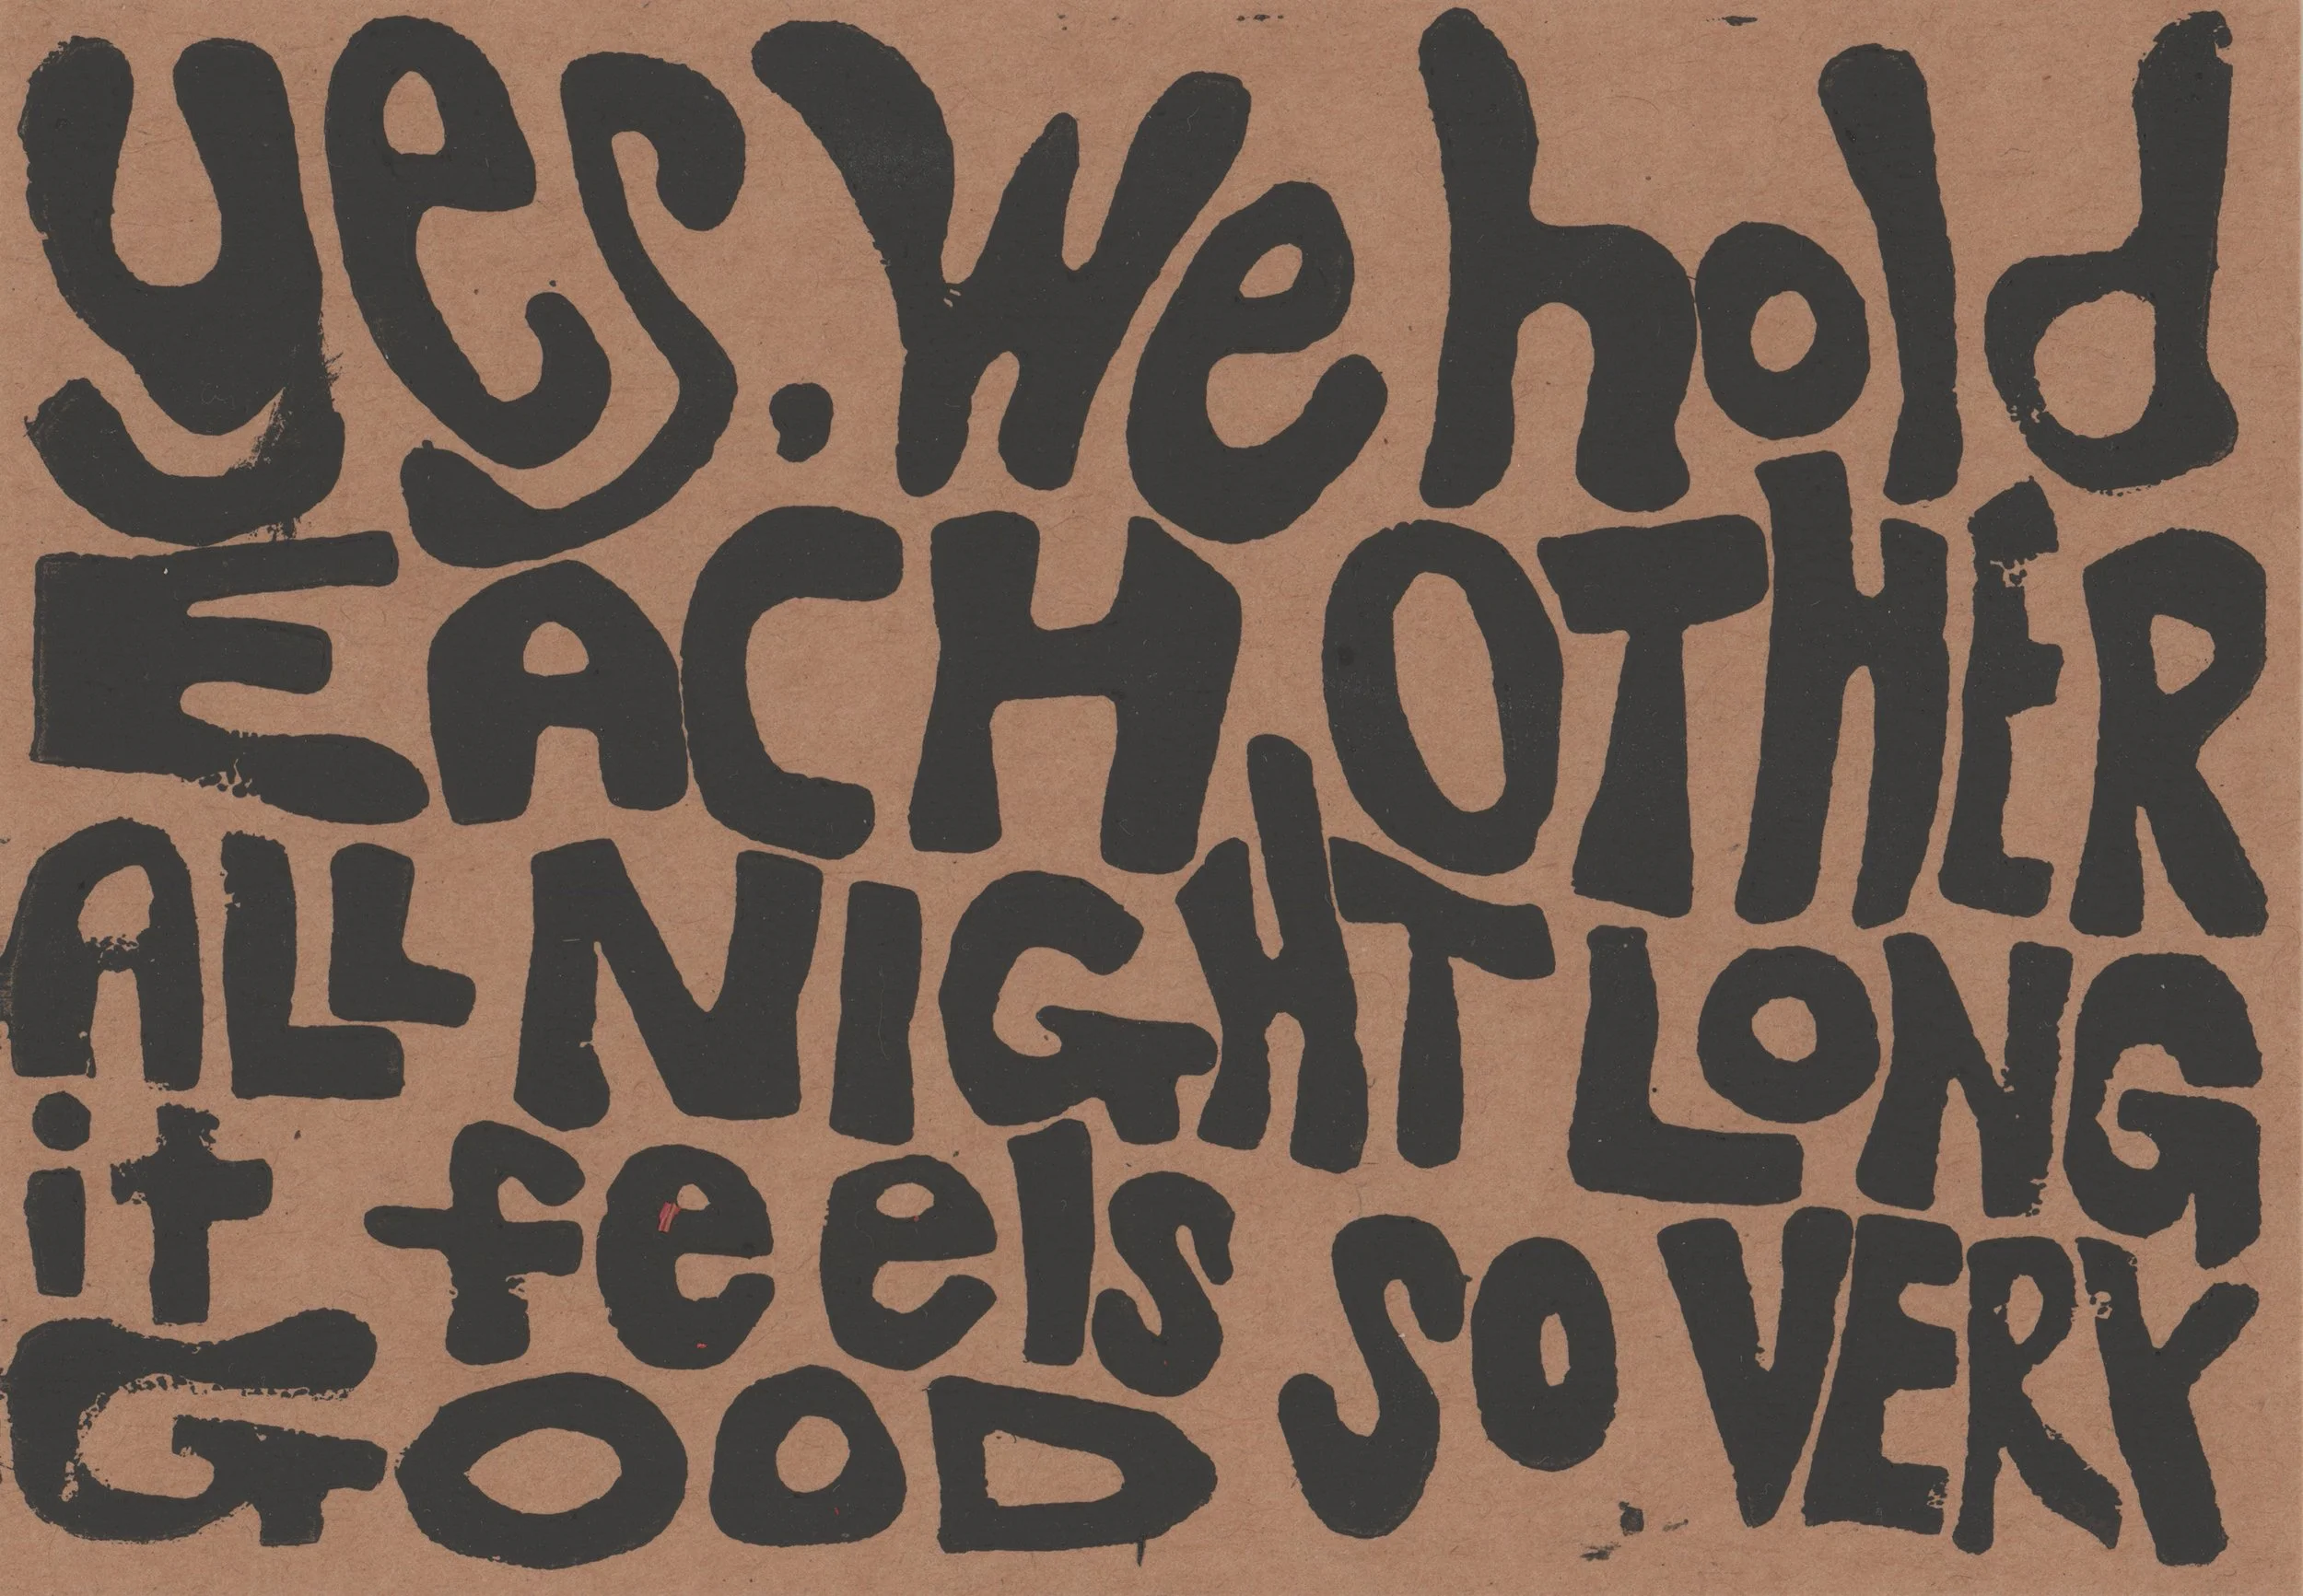 yes. We hold
EACH OTHER
ALL NIGHT LONG
it feels SO VERY
GOOD